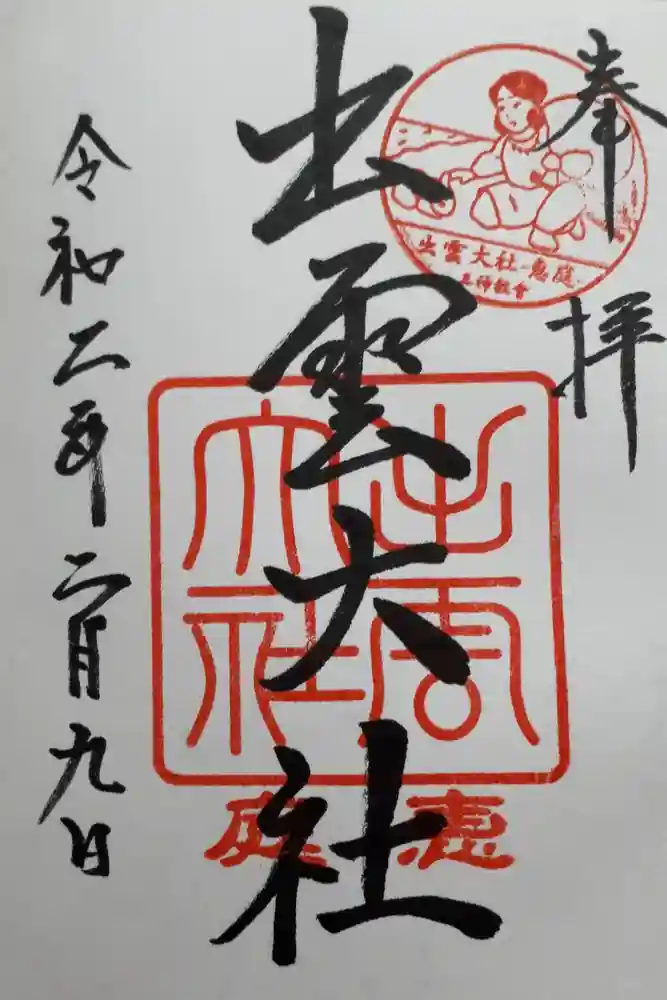 奉拝
出雲大社-恵庭
出雲大社
出雲大社
恵庭
令和二年二月九日